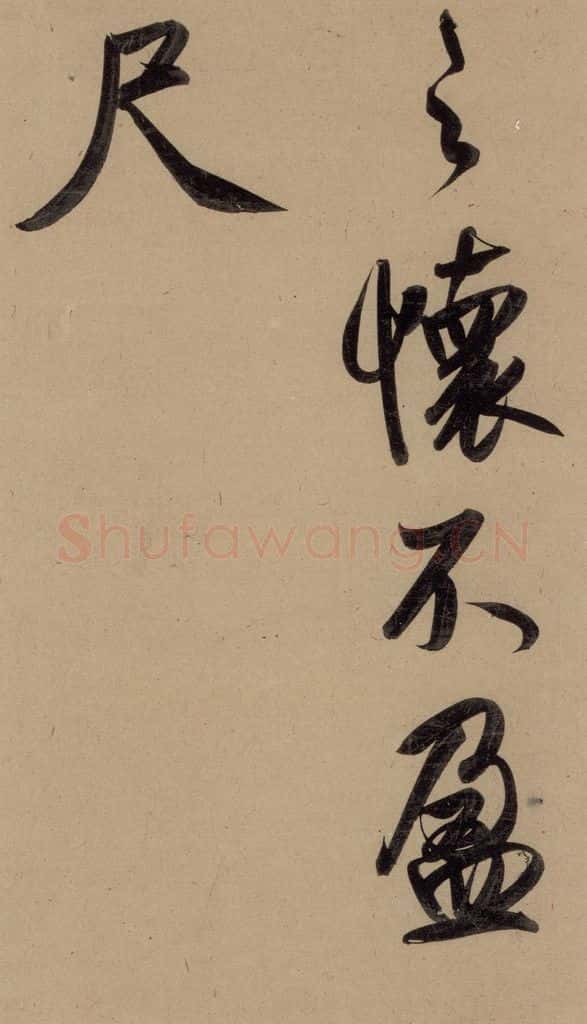 之懷不盈
尺
Shufawang.CN